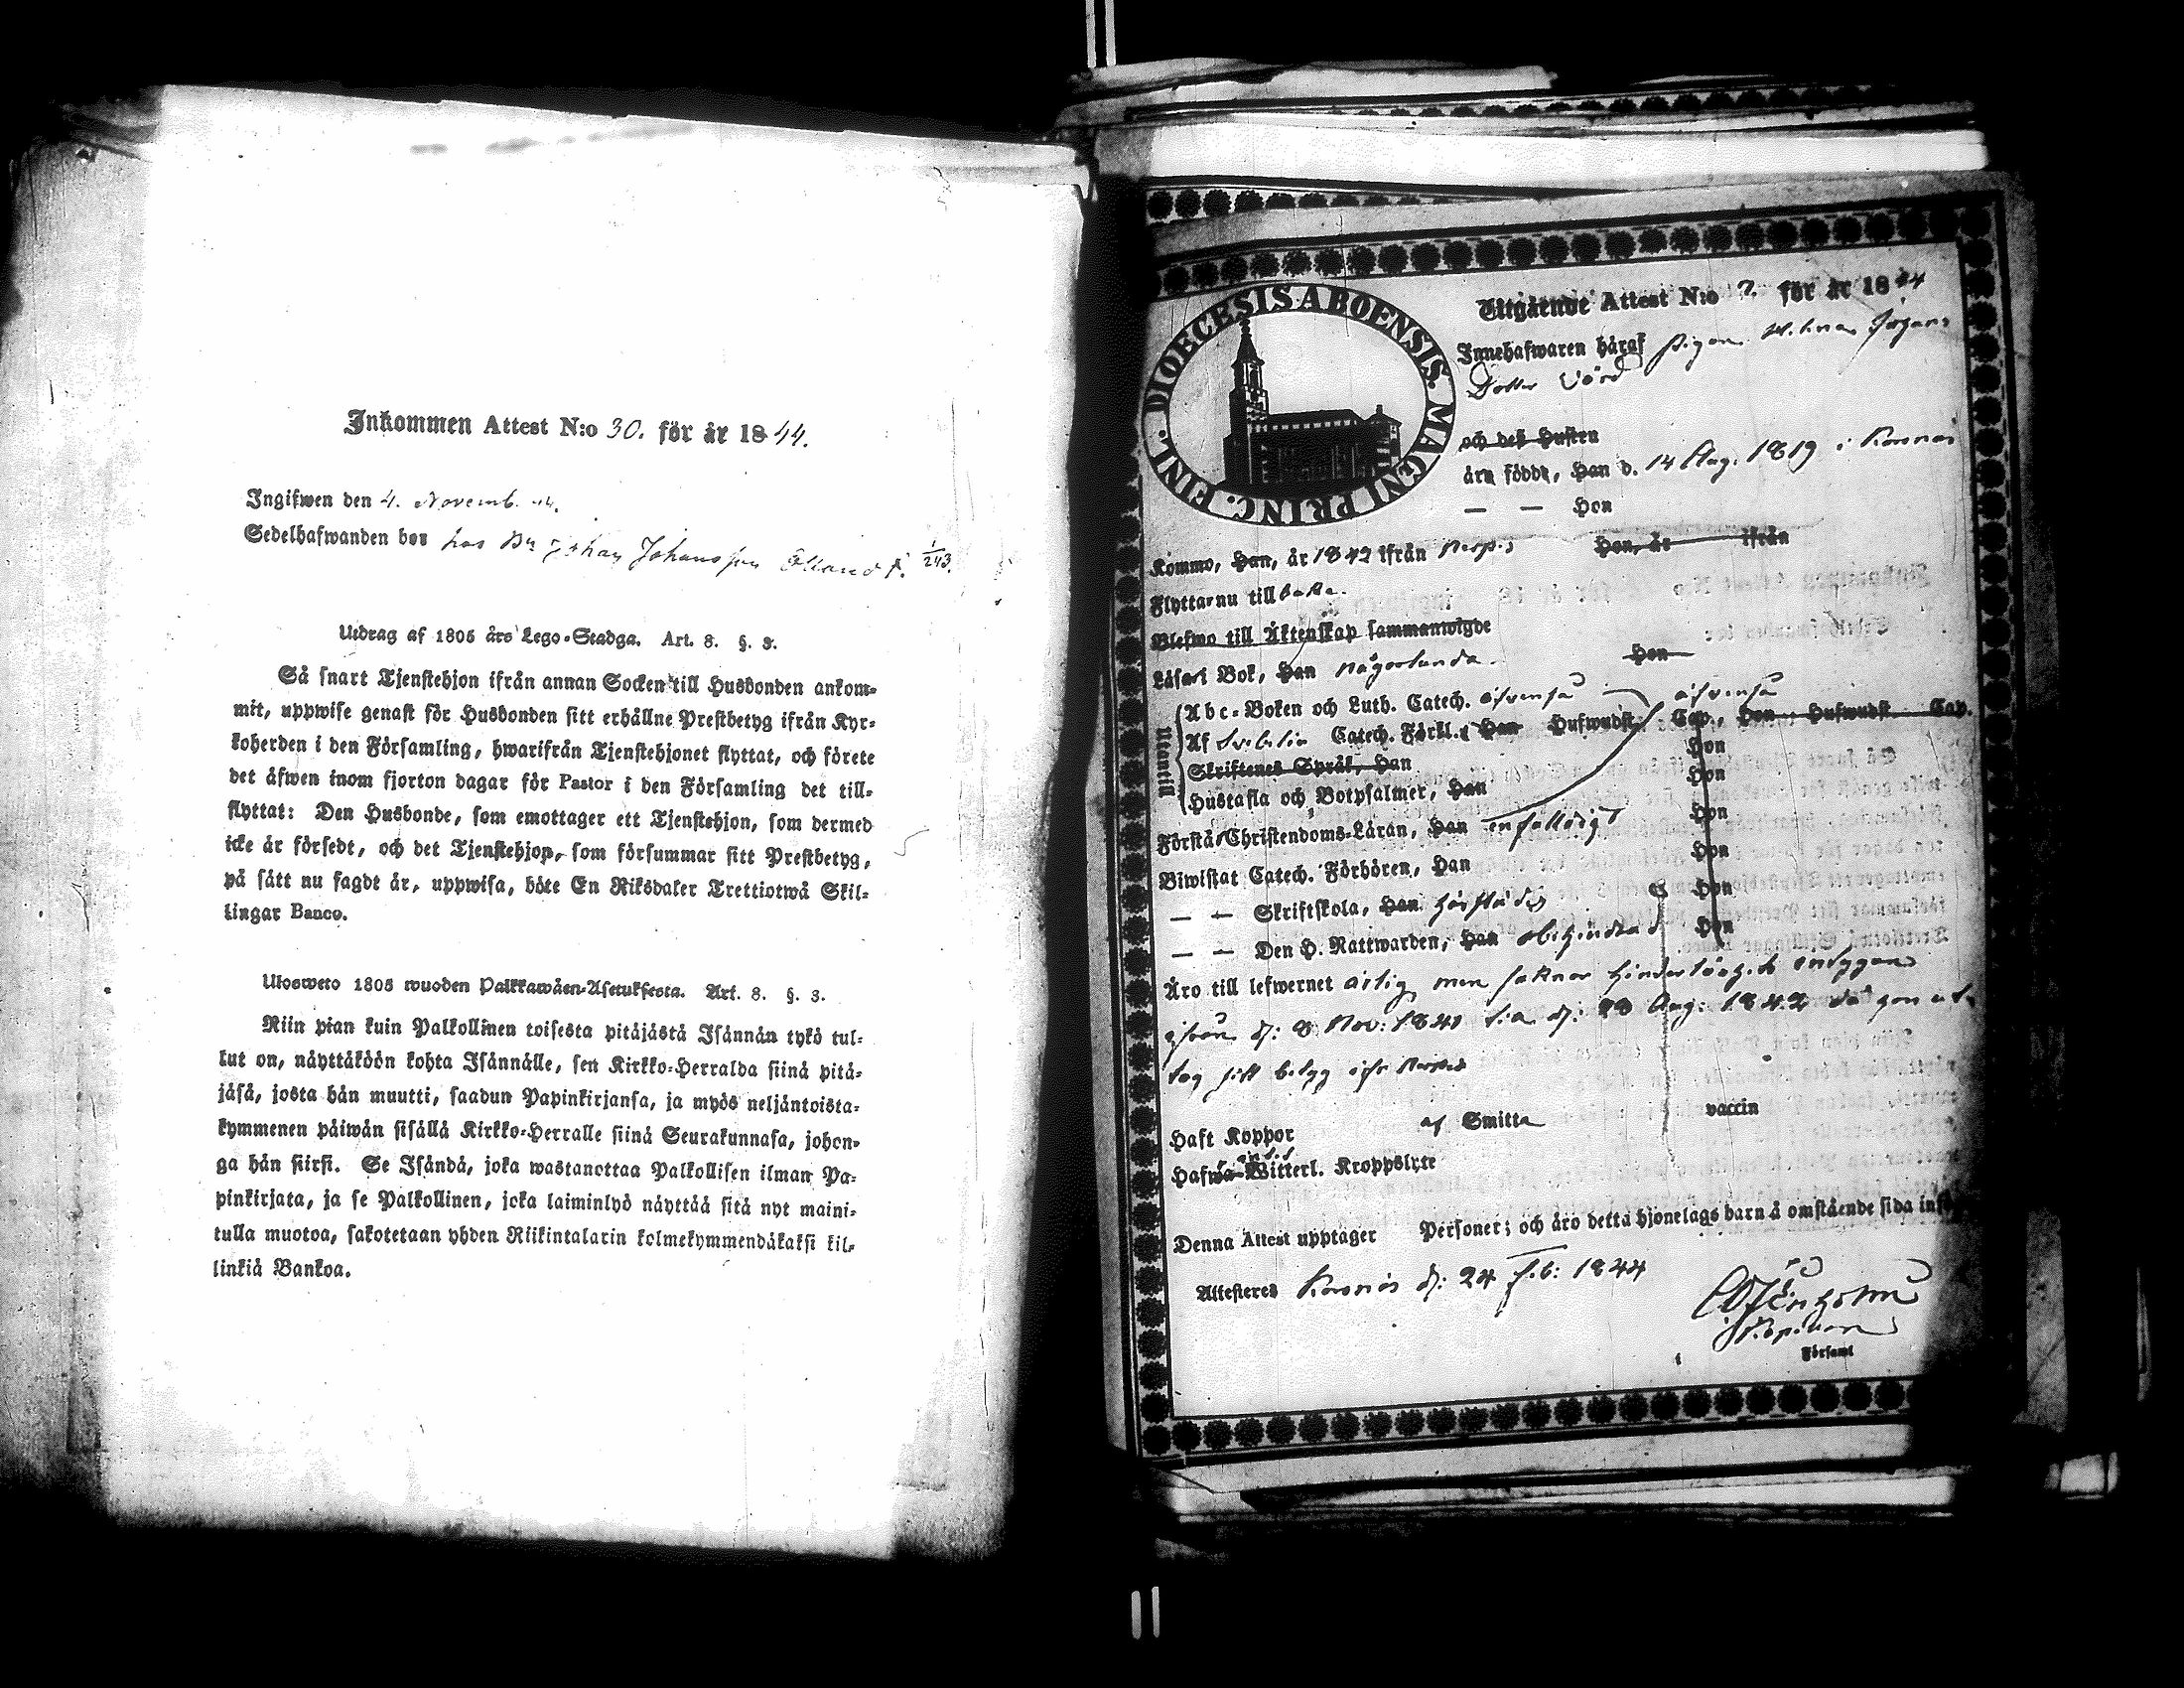 Inkommen Attest N:o 30. för år 1844.
Ingifwen den 4. Novemb. 44.
Sedelhafwanden bor hos Bn Johan Johansson 1/243.
Utdrag af 1805 års Lego-Stadga. Art. 8. §. 3.
Så snart Tjenstehjon ifrån annan Socken till Husbonden ankom-
mit, uppwise genast för Husbonden sitt erhållne Prestbetyg ifrån Kyr-
koherden i den Församling, hwarifrån Tjenstehjonet flyttat, och förete
det äfwen inom fjorton dagar för Pastor i den Församling det till-
flyttat: Den Husbonde, som emottager ett Tjenstehjon, som dermed
icke är försedt, och det Tjenstehjon, som försummar sitt Prestbetyg,
på sätt nu sagdt är, uppwisa, böte En Riksdaler Trettiotwå Skil-
lingar Banco.
Ulosweto 1805 wuoden Palkkawäen-Asetuksesta. Art. 8. §. 3.
Niin pian kuin Palkollinen toisesta pitäjästä Isännän tykö tul-
lut on, näyttäköön kohta Isännälle, sen Kirkko-Herralda siinä pitä-
jäsä, josta hän muutti, saadun Papinkirjansa, ja myös neljäntoista-
kymmenen päiwän sisällä Kirkko-Herralle siinä Seurakunnasa, johon-
ga hän siirsi. Se Isändä, joka wastanottaa Palkollisen ilman Pa-
pinkirjata, ja se Palkollinen, joka laiminlyö näyttää sitä nyt maini-
tulla muotoa, sakotetaan yhden Riikintalarin kolmekymmendäkaksi kil-
linkiä Bankoa.
DIOECESIS ABOENSIS. MAGNI PRINC. FINL.
Utgående Attest N:o 7. för år 1844
Innehafwaren häraf Pigan Johans
Dotter Vörd
och deß Hustru
äro födde, Han d. 14 Aug. 1819 i Korsnäs
— — Hon
Kommo, Han, år 1842 ifrån Nerpes Hon, år ifrån
Flyttar nu tillbaka.
Blefwo till Äktenskap sammanwigde
Läsa i Bok, Han någorlunda. Hon
Utantill
Abc-Boken och Luth. Catech. äfvenså äfvenså
Af Svebilii Catech. Förkl. Han Hufwudst. Cap., Hon Hufwudst. Cap.
Skriftenes Språk, Han Hon
Hustafla och Botpsalmer, Han Hon
Förstå Christendoms-Läran, Han enfaldigt Hon
Biwistat Catech. Förhören, Han Hon
— — Skriftskola, Han härstädes Hon
— — Den H. Nattwarden, Han obehindrad Hon
Äro till lefwernet ärlig men saknar hinderlöshets intygan
ifrån d: 8 Nov: 1841 t.a d: 28 Aug: 1842 då hon ut
tog sitt betyg ifr Nerpes
Haft Koppor af Smitta vaccin
Hafwa Witterl. Kroppslyte
Denna Attest upptager Personer; och äro detta hjonelags barn å omstående sida inf
Attesteres Korsnäs d: 24 Feb: 1844
Församl